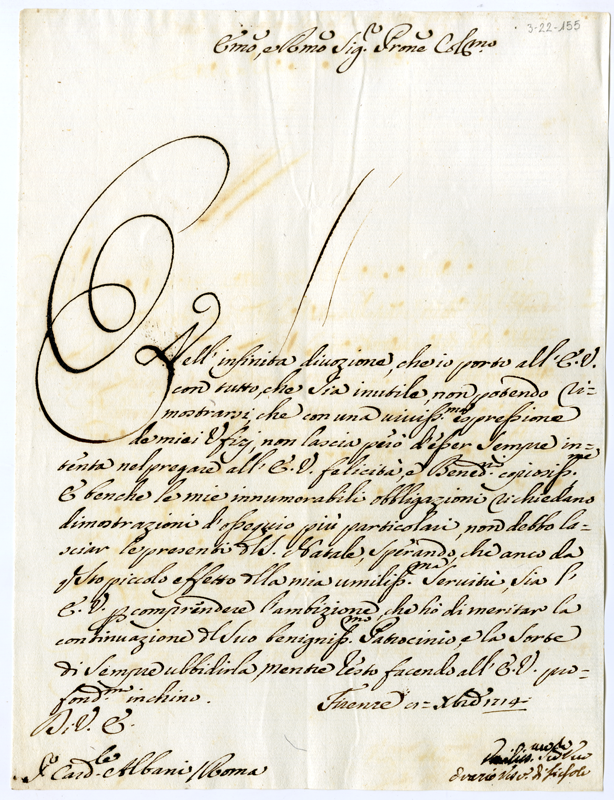 3-22-155
Emo, e Rmo Sig.r Prone Colmo
Nell' infinita divozione, che io porto all' E.V.
con tutto che sia inutile, non potendo di-
mostrarsi, che con una viviss.ma espressione
de miei Ufizj, non lascia però d'esser sempre in-
tenta nel pregare all' E.V. felicità, e Bened.ni copiosiss.me
E benche le mie innumerabili obbligazioni richiedano
dimostrazioni d'ossequio più particolari, non debbo la-
sciar le presenti del S. Natale, sperando, che anco da
qsto piccolo effetto della mia umiliss.ma Servitù, sia l'
E.V. p comprendere l'ambizione, che hò di meritar la
continuazione del Suo benigniss.mo Patrocinio, e la Sorte
di sempre ubbidirla mentre resto facendo all' E.V. pro-
fond.mo inchino. Firenze Xbre 1714
Di V. E.
Sr Card.le Albani / Roma
Vesc.o di Fiesole